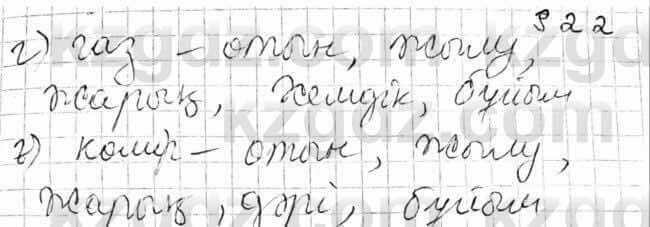 322
г) газ – отын, жылу,
жарық, жемдік, бұйым
ғ) көмір – отын, жылу,
жарық, дәрі, бұйым